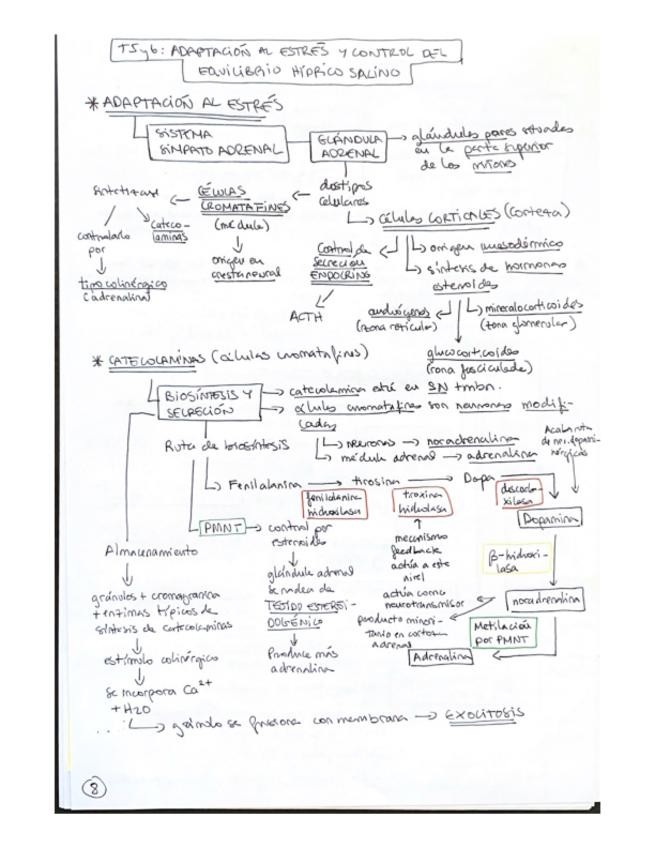 T5y6: ADAPTACIÓN AL ESTRÉS Y CONTROL DEL
EQUILIBRIO HÍDRICO SALINO
* ADAPTACIÓN AL ESTRÉS
SISTEMA
SIMPATO ADRENAL
GLÁNDULA
ADRENAL
→ glándulas pares situadas
en la parte superior
de los riñones
dos tipos
celulares
CÉLULAS
CROMAFINES
(médula)
origen en
cresta neural
catecolaminas
controlado
por
tipo colinérgico
(adrenalina)
CÉLULAS CORTICALES (corteza)
origen mesodérmico
síntesis de hormonas
esteroides
Control de
SECRECIÓN
ENDOCRINO
ACTH
andrógenos
(zona reticular)
mineralocorticoides
(zona glomerular)
glucocorticoides
(zona fasciculada)
* CATECOLAMINAS (células cromafines)
BIOSÍNTESIS Y
SECRECIÓN
→ catecolamina está en SN tmbn.
→ células cromafinas son neuronas modifi-
cadas
neuronas → noradrenalina
médula adrenal → adrenalina
Ruta de biosíntesis
Fenilalanina → tirosina → Dopa
fenilalanina
hidroxilasa
tiroxina
hidroxilasa
Dopamina
β-hidroxi-
lasa
noradrenalina
Metilación
por PMNT
Adrenalina
PMNT → control por
esteroides
glándula adrenal
se rodea de
TEJIDO ESTEROI-
DOGÉNICO
Produce más
adrenalina
mecanismo
feedback
actúa a este
nivel
actúa como
neurotransmisor
producto minori-
tario en corteza
adrenal
Almacenamiento
gránulos + cromogranina
+ enzimas típicos de
síntesis de catecolaminas
estímulo colinérgico
se incorpora Ca²⁺
+ H2O
... → gránulo se fusiona con membrana → EXOCITOSIS
8